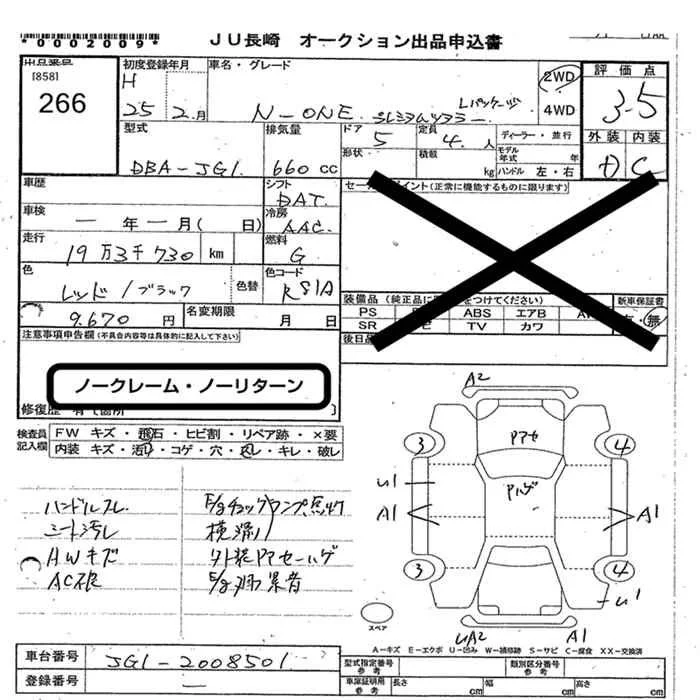 *0002009*
JU長崎 オークション出品申込書
出品番号
[858]
266
初度登録年月
H
25 2月
車名・グレード
N-ONE プレミアムツアラー Lパッケージ
2WD
4WD
評価点
3.5
外装 内装
D C
型式
DBA-JG1
排気量
660cc
ドア 5
形状
定員 4人
積載 kg
ディーラー・並行
モデル年式 年
ハンドル 左・右
車歴
シフト
DAT
車検
一年一月( 日)
冷房
AAC
走行
19万3千730 km
燃料
G
色
レッド/ブラック
色替
色コード
R81A
9.670円
名変期限 月 日
セールスポイント(正常に機能するものに限ります)
装備品(純正品に をつけてください)
新車保証書
PS ABS エアB
SR TV カワ
・無
後日品
注意事項申告欄(不具合内容等は具体的に記入して下さい)
ノークレーム・ノーリターン
修復歴 有(箇所 )
検査員記入欄
FW キズ・飛石・ヒビ割・リペア跡・×要
内装 キズ・汚れ・コゲ・穴・スレ・キレ・破レ
ハンドルスレ
シート汚レ
HWキズ
E/gチェックランプ点灯
横滑り
外装PアセーハゲE/g 異音
A2
Pアセ
Pハゲ
3 4
U1
A1 A1
3 4
U1
UA2 A1
スペア
A=キズ E=エクボ U=凹み W=補修跡 S=サビ C=腐食 XX=交換済
車台番号
JG1-2008501
登録番号
一
型式指定番号参考
類別区分番号参考
車庫証明用参考
長さ cm 幅 cm 高さ cm